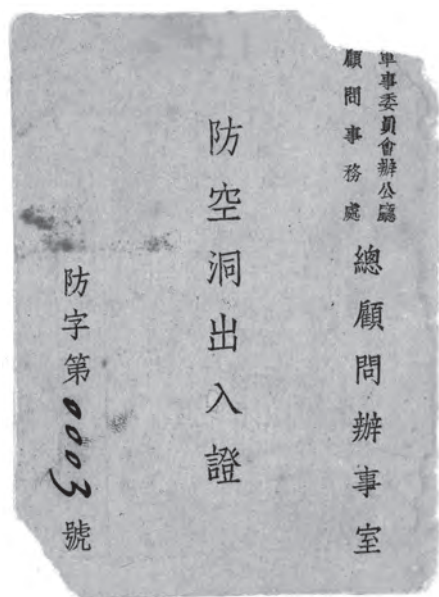 軍事委員會辦公廳
顧問事務處
總顧問辦事室
防空洞出入證
防字第0003號